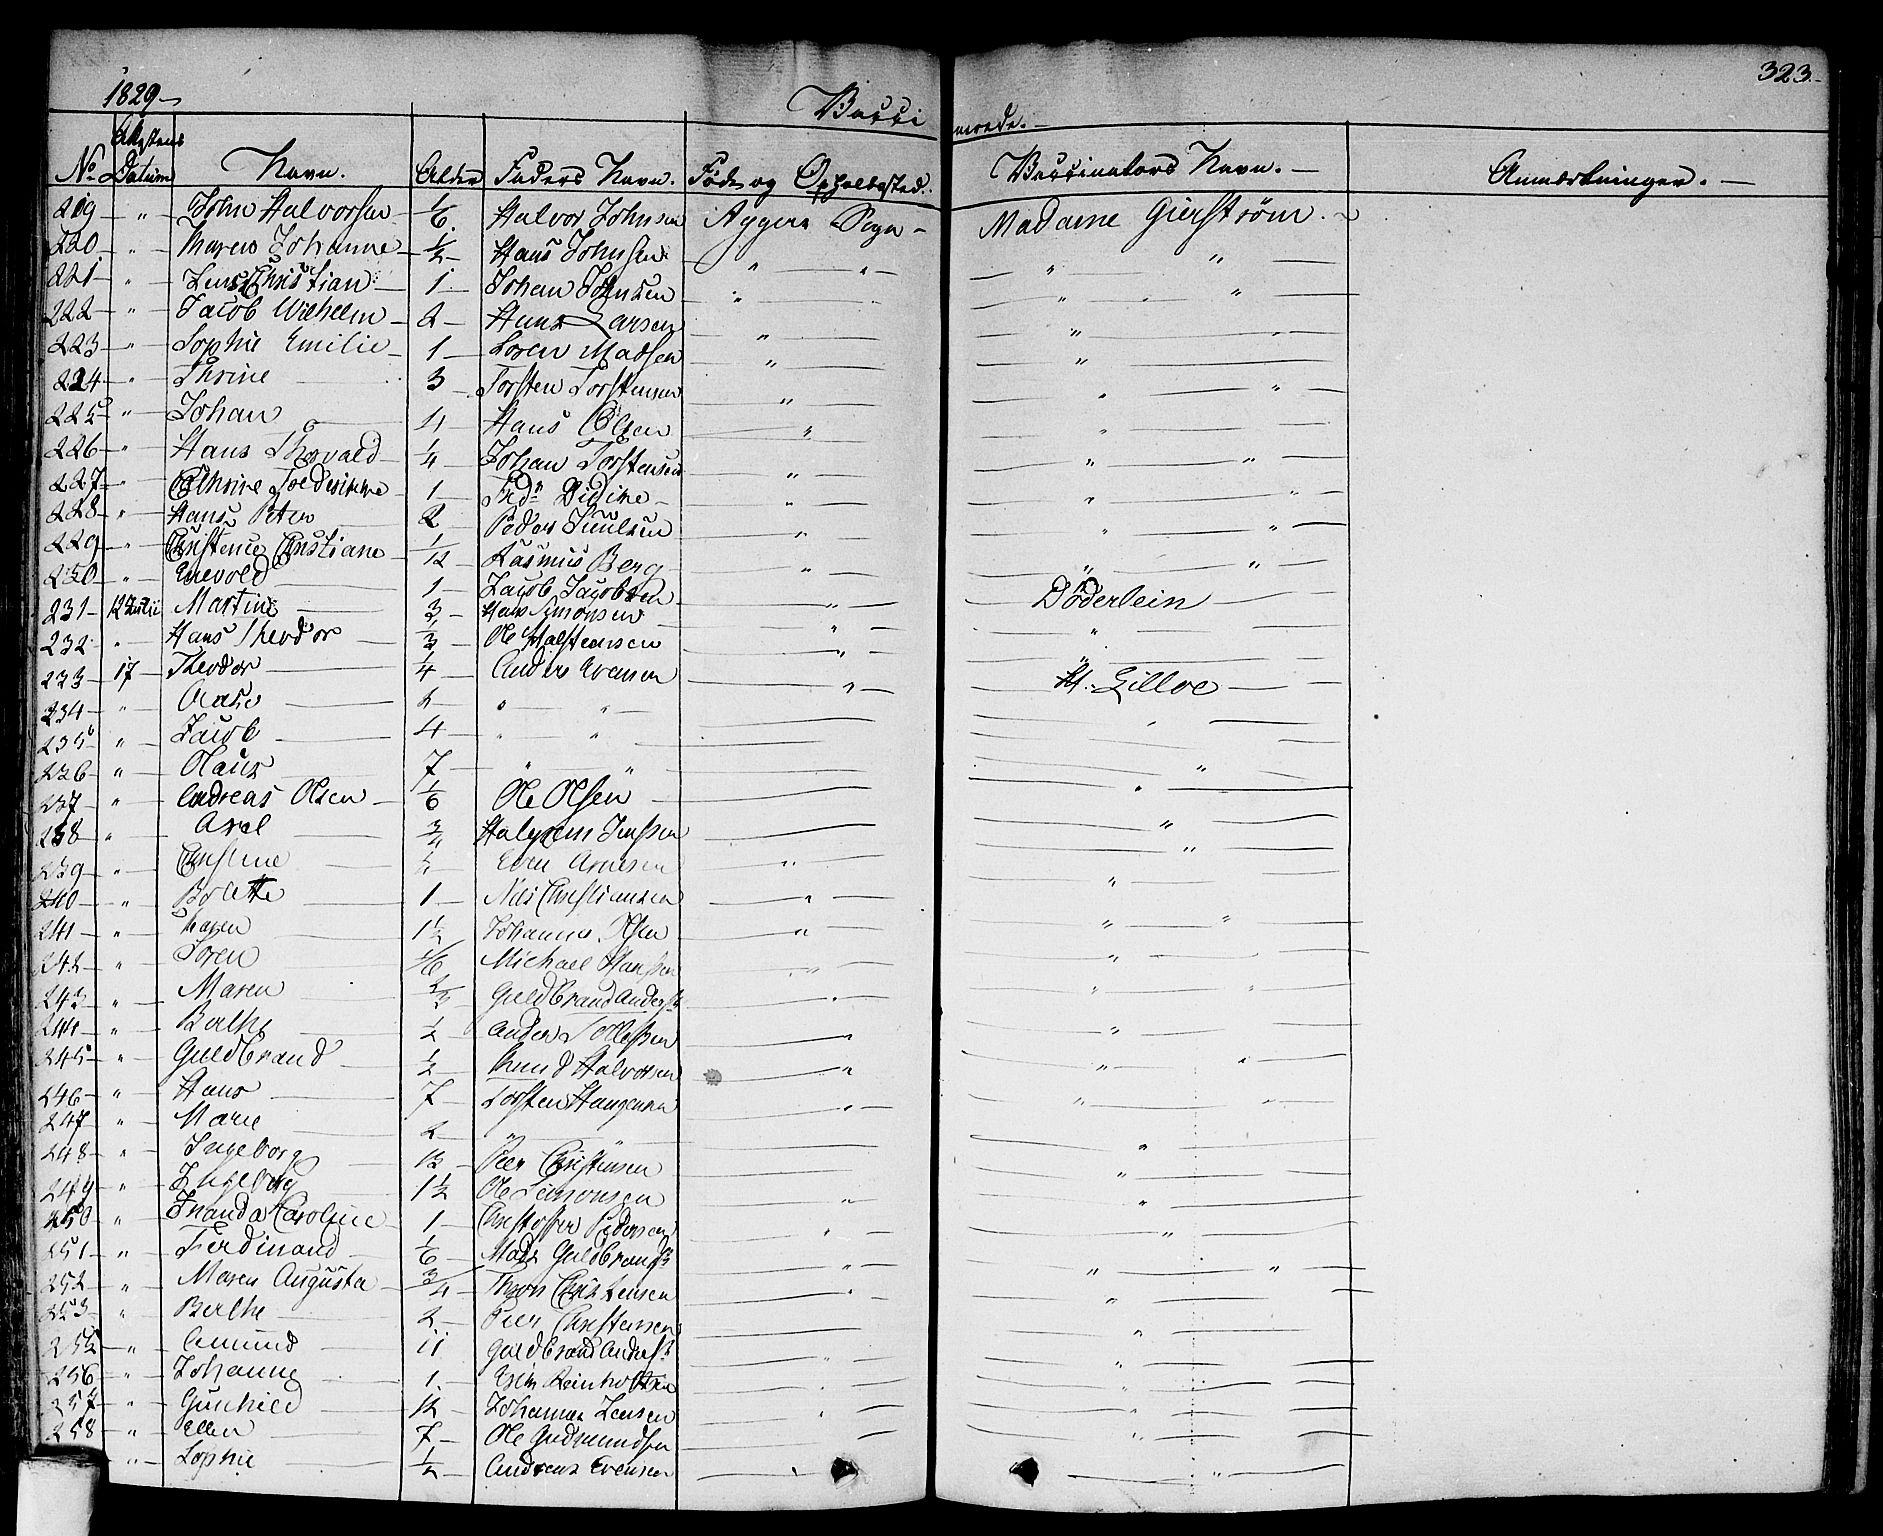 1829 Vacci nerede. 323.
No Attestens Datum Navn. Alder Faders Navn. Føde og Opholdssted. Vaccinators Navn. Anmærkninger.
219 " John Halvorsen 1/6 Halvor Johnsen Aggers Sogn Madame Gierstrøm.
220 " Maren Johanne 1/2 Hans Johnsen " " " "
221 " Jens Christian 1 Johan Johnsen " " "
222 " Jacob Wilhelm 2 Hans Larsen " "
223 " Sophie Emilie 1 Soren Madsen " "
224 " Thrine 3 Torsten Torstensen " " "
225 " Johan 11 Hans Olsen " "
226 " Hans Thorvald 1/4 Johan Torstensen " " "
227 " Cathrine 1 " " "
228 " Hans Peter 2 Peder Juulsen " " "
229 " Christence Christiane 1/12 Rasmus Berg " " "
230 " Enevold 1 Jacob Jacobsen " Døderlein
231 12 Julii Martine 3 Hans Simonsen " "
232 " Hans Theodor 1/3 Ole Halstensen " "
233 17 Theodor 1/4 Anders Evensen " H. Lilloe
234 " 2 " " "
235 " Jacob 4 " "
236 " Olaus 7 " " "
237 " Andreas Olsen 1/6 Ole Olsen "
238 " Axel 3/4 Jensen "
239 " Christine 1/4 Even Arnesen " "
240 " Bolette 1 Nils Christiansen " "
241 " Karen 1 1/2 Johannes Olsen " " "
242 " Soren Michael Hansen " " "
243 " Maren 2/3 Guldbrand Anders. " "
244 " Berthe 1/2 Anders "
245 " Guldbrand 1/2 Knud Halvorsen " "
246 " Hans 7 Torsten " " "
247 " Marie 2 " " "
248 " Ingeborg 12 Peer Christensen "
249 " Ingeborg 1 1/2 Ole Simonsen " "
250 " Caroline 1 Christoffer Pedersen " "
251 " Ferdinand 1/6 Mads Guldbrands. " " "
252 " Maren Augusta 3/4 Thron Christensen " "
253 " Berthe 2 Peer Christensen "
255 " Amund 11 Guldbrand Anders. " "
256 " Johanne 1 Reinholtsen " "
257 " Gunhild 12 Johannes Jensen " "
258 " Ellen 7 Ole Gudmundsen
" Sophie 1/2 Andreas Evensen "